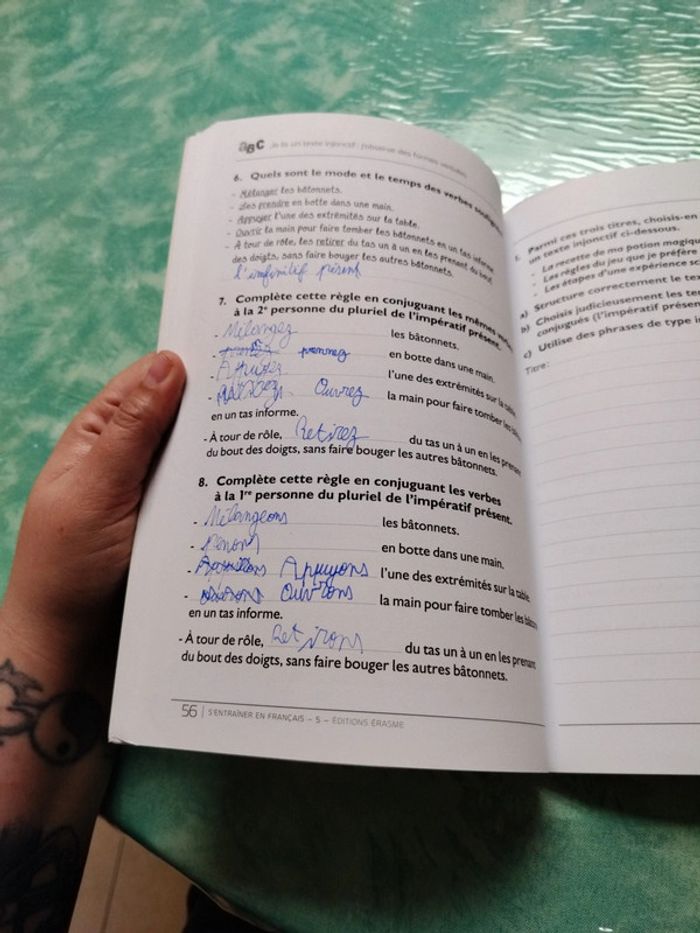 aBC Je lis un texte injonctif : j'observe des formes verbales
6. Quels sont le mode et le temps des verbes
- Mélanger les bâtonnets.
- Les prendre en botte dans une main.
- Appuyer l'une des extrémités sur la table.
- Ouvrir la main pour faire tomber les bâtonnets en un tas informe.
- À tour de rôle, les retirer du tas un à un en les prenant du bout
des doigts, sans faire bouger les autres bâtonnets.
l'infinitif présent
7. Complète cette règle en conjuguant les mêmes
à la 2e personne du pluriel de l'impératif présent.
- Mélangez les bâtonnets.
- prennez en botte dans une main.
- Appuiez l'une des extrémités sur la table
- Ouvrez la main pour faire tomber les
en un tas informe.
- À tour de rôle, Retirez du tas un à un en les prenant
du bout des doigts, sans faire bouger les autres bâtonnets.
8. Complète cette règle en conjuguant les verbes
à la 1re personne du pluriel de l'impératif présent.
- Mélangeons les bâtonnets.
- en botte dans une main.
- Appuyons l'une des extrémités sur la table
- Ouvrons la main pour faire tomber les
en un tas informe.
- À tour de rôle, Retirons du tas un à un en les prenant
du bout des doigts, sans faire bouger les autres bâtonnets.
56 | S'ENTRAÎNER EN FRANÇAIS – 5 – ÉDITIONS ÉRASME
1. Parmi ces trois titres, choisis-en
un texte injonctif ci-dessous.
- La recette de ma potion magique
- Les règles du jeu que je préfère
- Les étapes d'une expérience
a) Structure correctement le
b) Choisis judicieusement les
conjugués (l'impératif
c) Utilise des phrases de type
Titre: